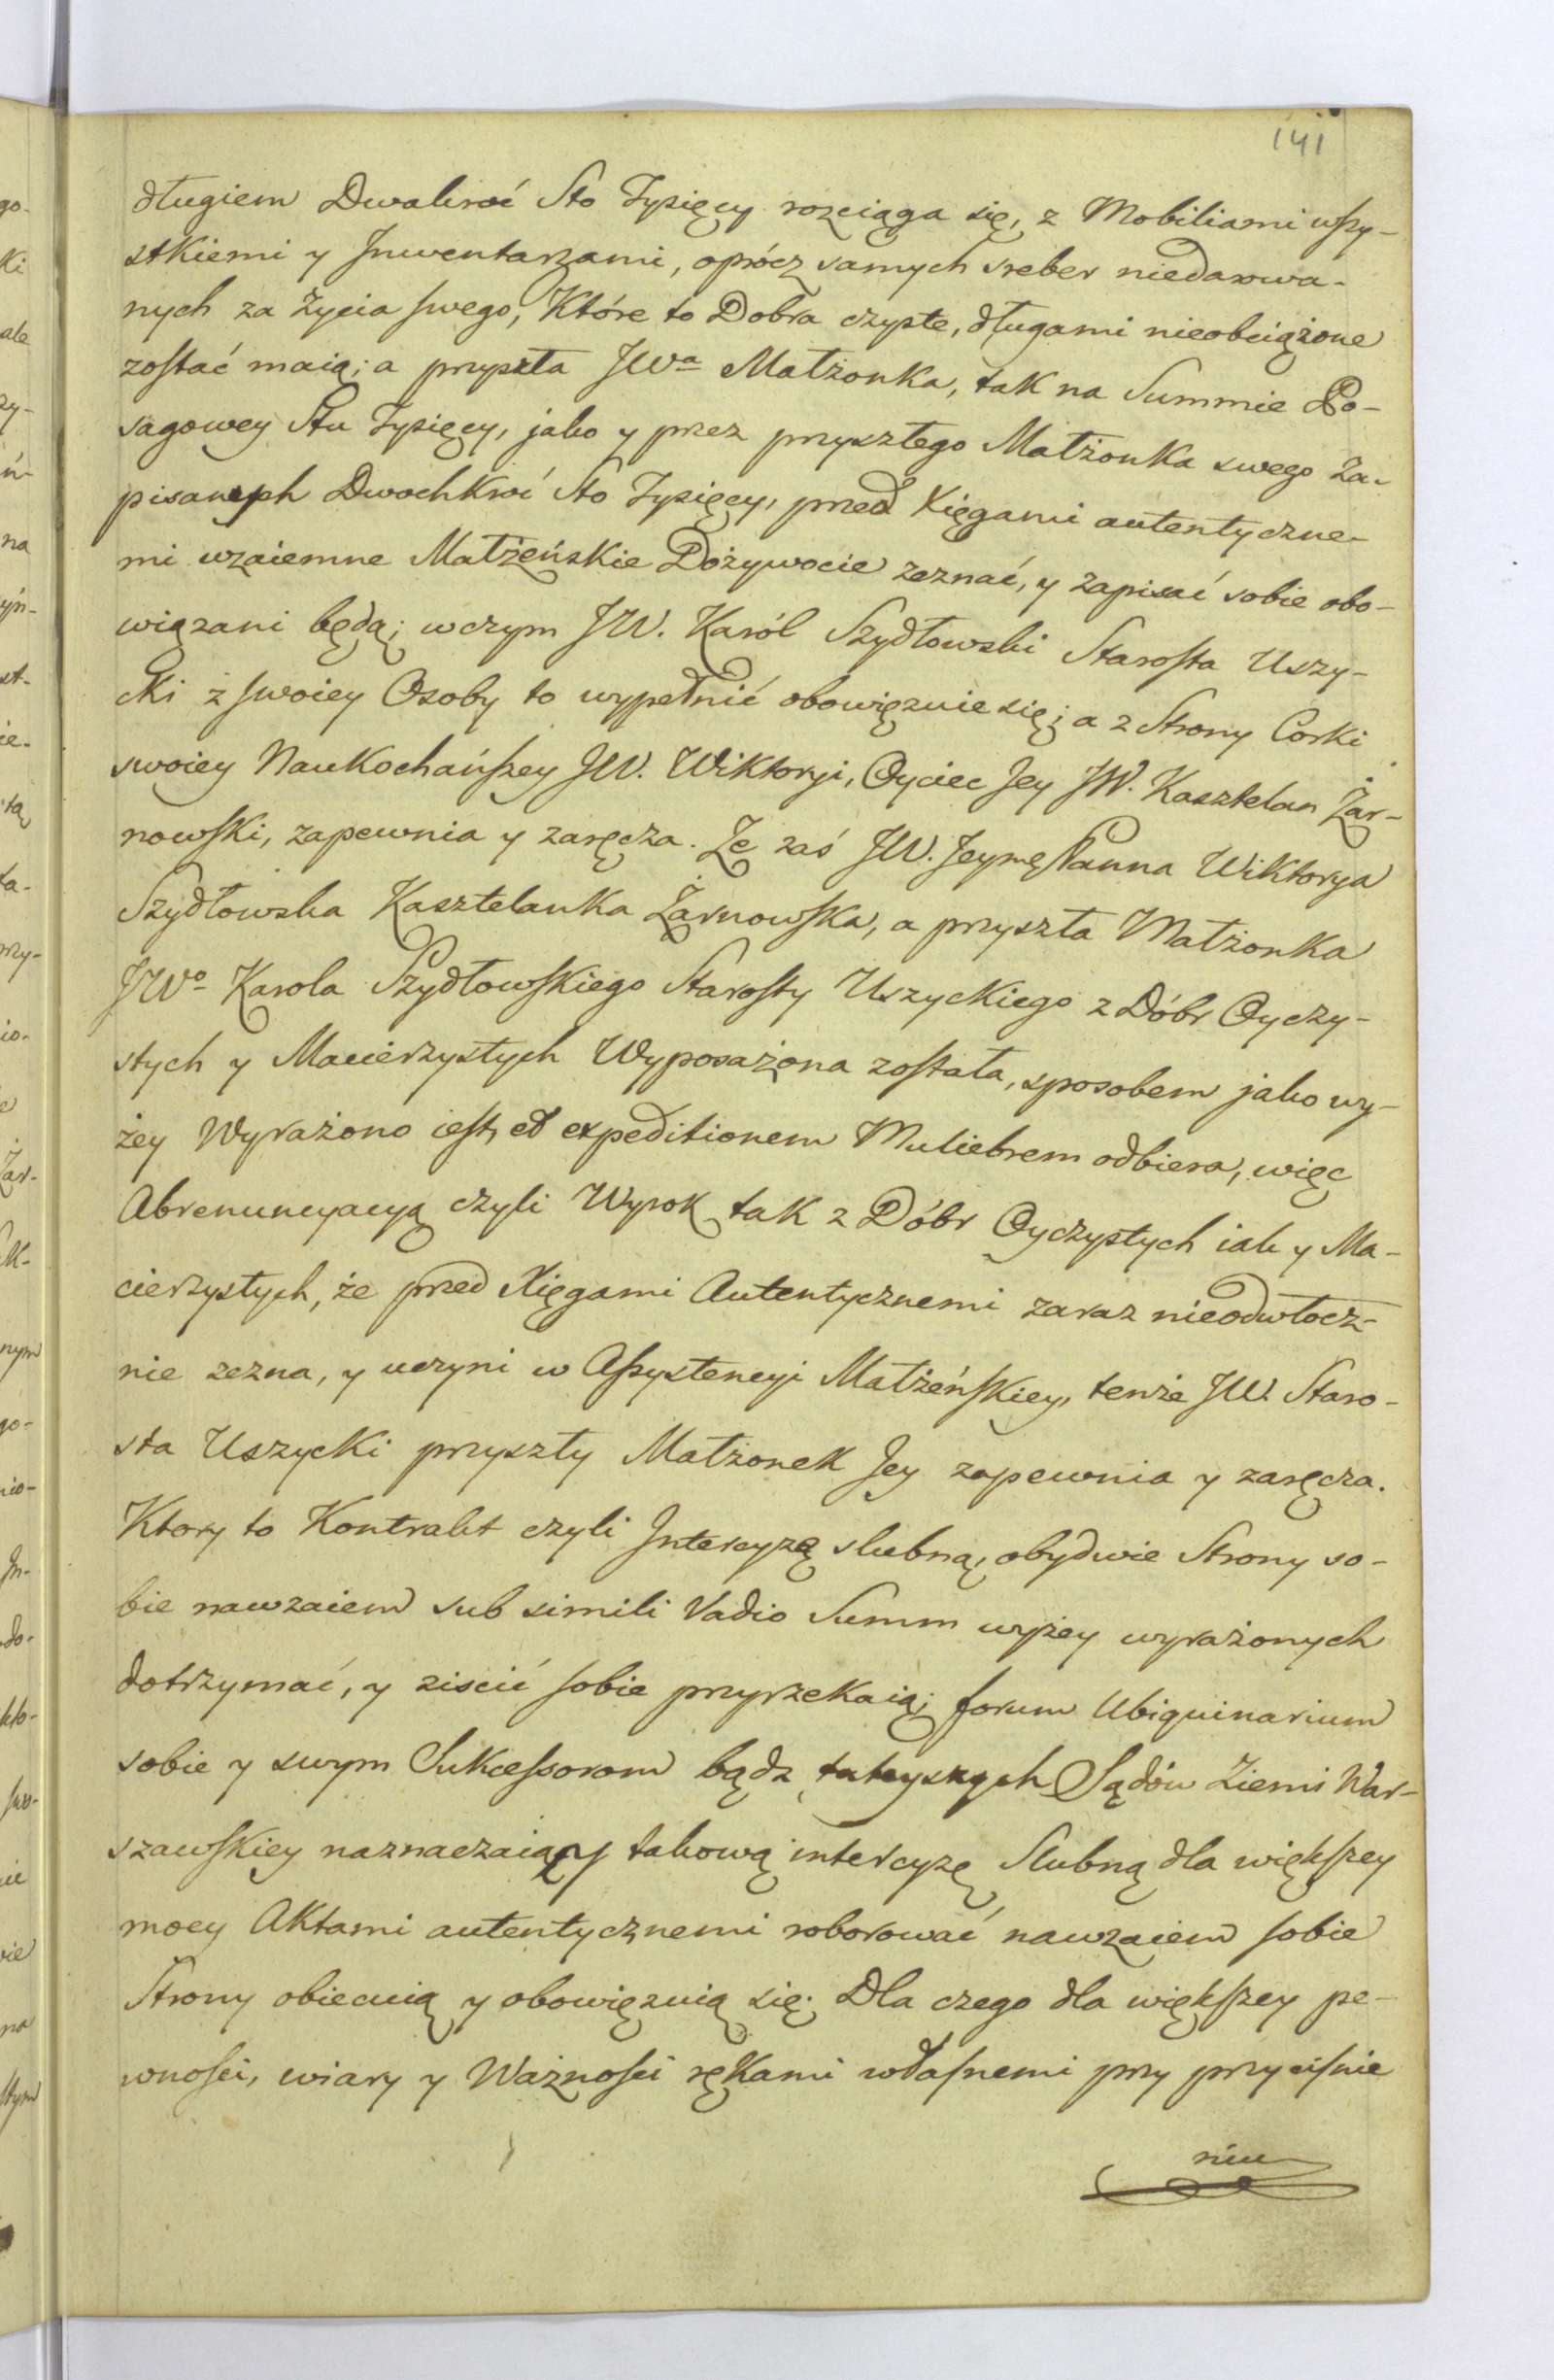 141
długiem Dwakroć Sto Tysięcy rozciąga się, z Mobiliami wszy-
stkiemi y Inwentarzami, oprócz samych sreber niedarowa-
nych za życia swego, Które to Dobra czyste, długami nieobciążone
zostać maią; a przyszła JWa Małżonka, tak na Summie Po-
sagowey Stu Tysięcy, jako y przez przyszłego Małżonka swego Za-
pisanych Dwochkroć Sto Tysięcy, przed Xięgami autentyczne-
mi wzaiemne Małżeńskie Dożywocie zeznać, y zapisać sobie obo-
wiązani będą; w czym JW. Karól Szydłowski Starosta Uszy-
cki z swoiey Osoby to wypełnić obowięzuie się; a z Strony Corki
swoiey Naukochańszey JW. Wiktoryi, Oyciec Jey JW. Kasztelan Żar-
nowski, zapewnia y zaręcza. Że zaś JW. Jeymę Panna Wiktorya
Szydłowska Kasztelanka Żarnowska, a przyszła Małżonka
JWo Karola Szydłowskiego Starosty Uszyckiego z Dóbr Oyczy-
stych y Macierzystych Wyposażona została, sposobem jako wy-
żey Wyrażono iest, et expeditionem Muliebrem odbiera, więc
Abrenuncyacyą czyli Wyrok tak z Dóbr Oyczystych iak y Ma-
cierzystych, że przed Xięgami Autentycznemi zaraz nieodwłocz-
nie zezna, y uczyni w Assystencyi Małżeńskiey, tenże JW. Staro-
sta Uszycki przyszły Małżonek Jey zapewnia y zaręcza.
Ktory to Kontrakt czyli Intercyzę slubną, obydwie Strony so-
bie nawzaiem sub simili Vadio Summ wyżey wyrażonych
dotrzymać, y ziscić sobie przyrzekaią; forum Ubiquinarium
sobie y swym Sukcessorom bądz tuteyszych Sądów Ziemi War-
szawskiey naznaczaiąc y takową intercyzę Slubną dla większey
mocy Aktami autentycznemi roborować nawzaiem sobie
Strony obiecuią y obowięzuią się. Dla czego dla większey pe-
wności, wiary y Ważności rękami własnemi przy przycisnie
niu